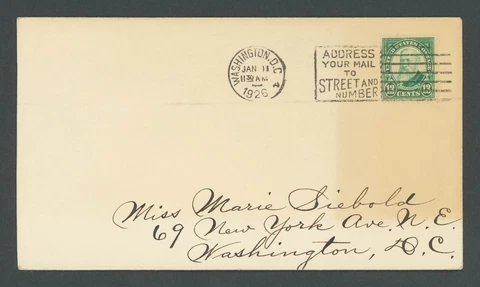 WASHINGTON, D.C.
JAN 11
11 30 AM
4
1926
ADDRESS
YOUR MAIL
TO
STREET AND
NUMBER
UNITED STATES POSTAGE
12 CENTS 12
Miss Marie Siebold
69 New York Ave. N. E.
Washington, D. C.